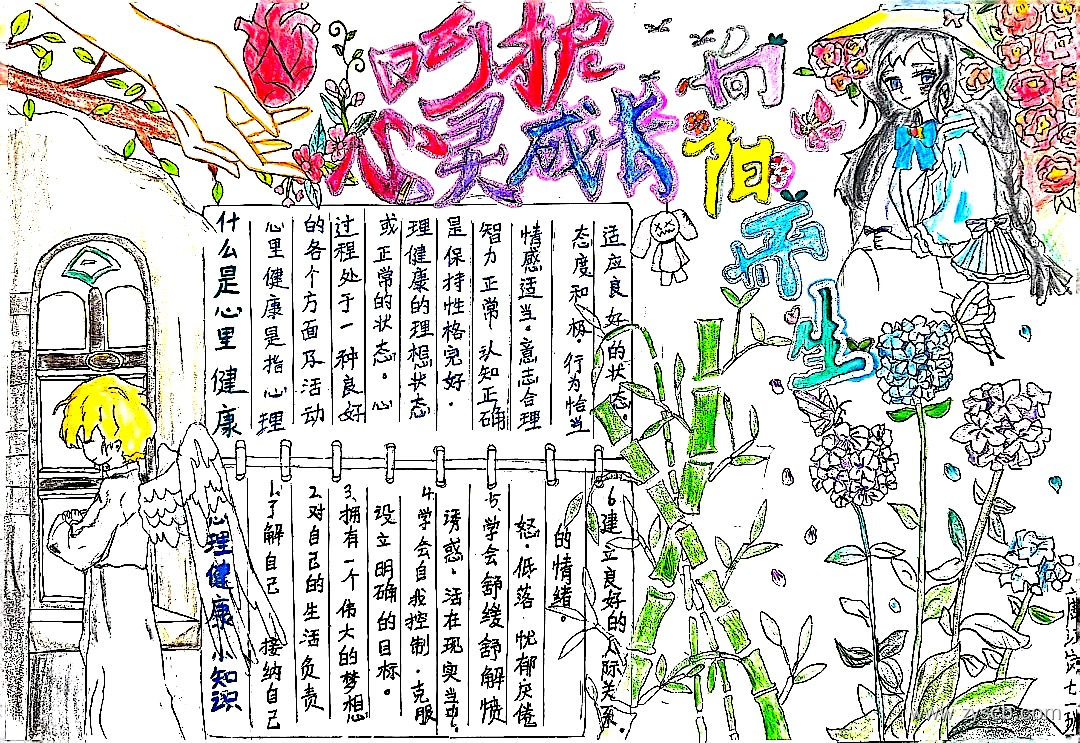 呵护
心灵成长
向阳而生
什么是心里健康
心里健康是指心理
的各个方面及活动
过程处于一种良好
或正常的状态。心
理健康的理想状态
是保持性格完好.
智力正常 认知正确
情感适当.意志合理
态度积极.行为恰当
适应良好的状态.
心理健康小知识
1.了解自己 接纳自己
2.对自己的生活负责
3.拥有一个伟大的梦想
设立明确的目标.
4.学会自我控制.克服
诱惑.活在现实当中.
5.学会舒缓舒解愤
怒.低落 忧郁厌倦
的情绪.
6.建立良好的人际关系